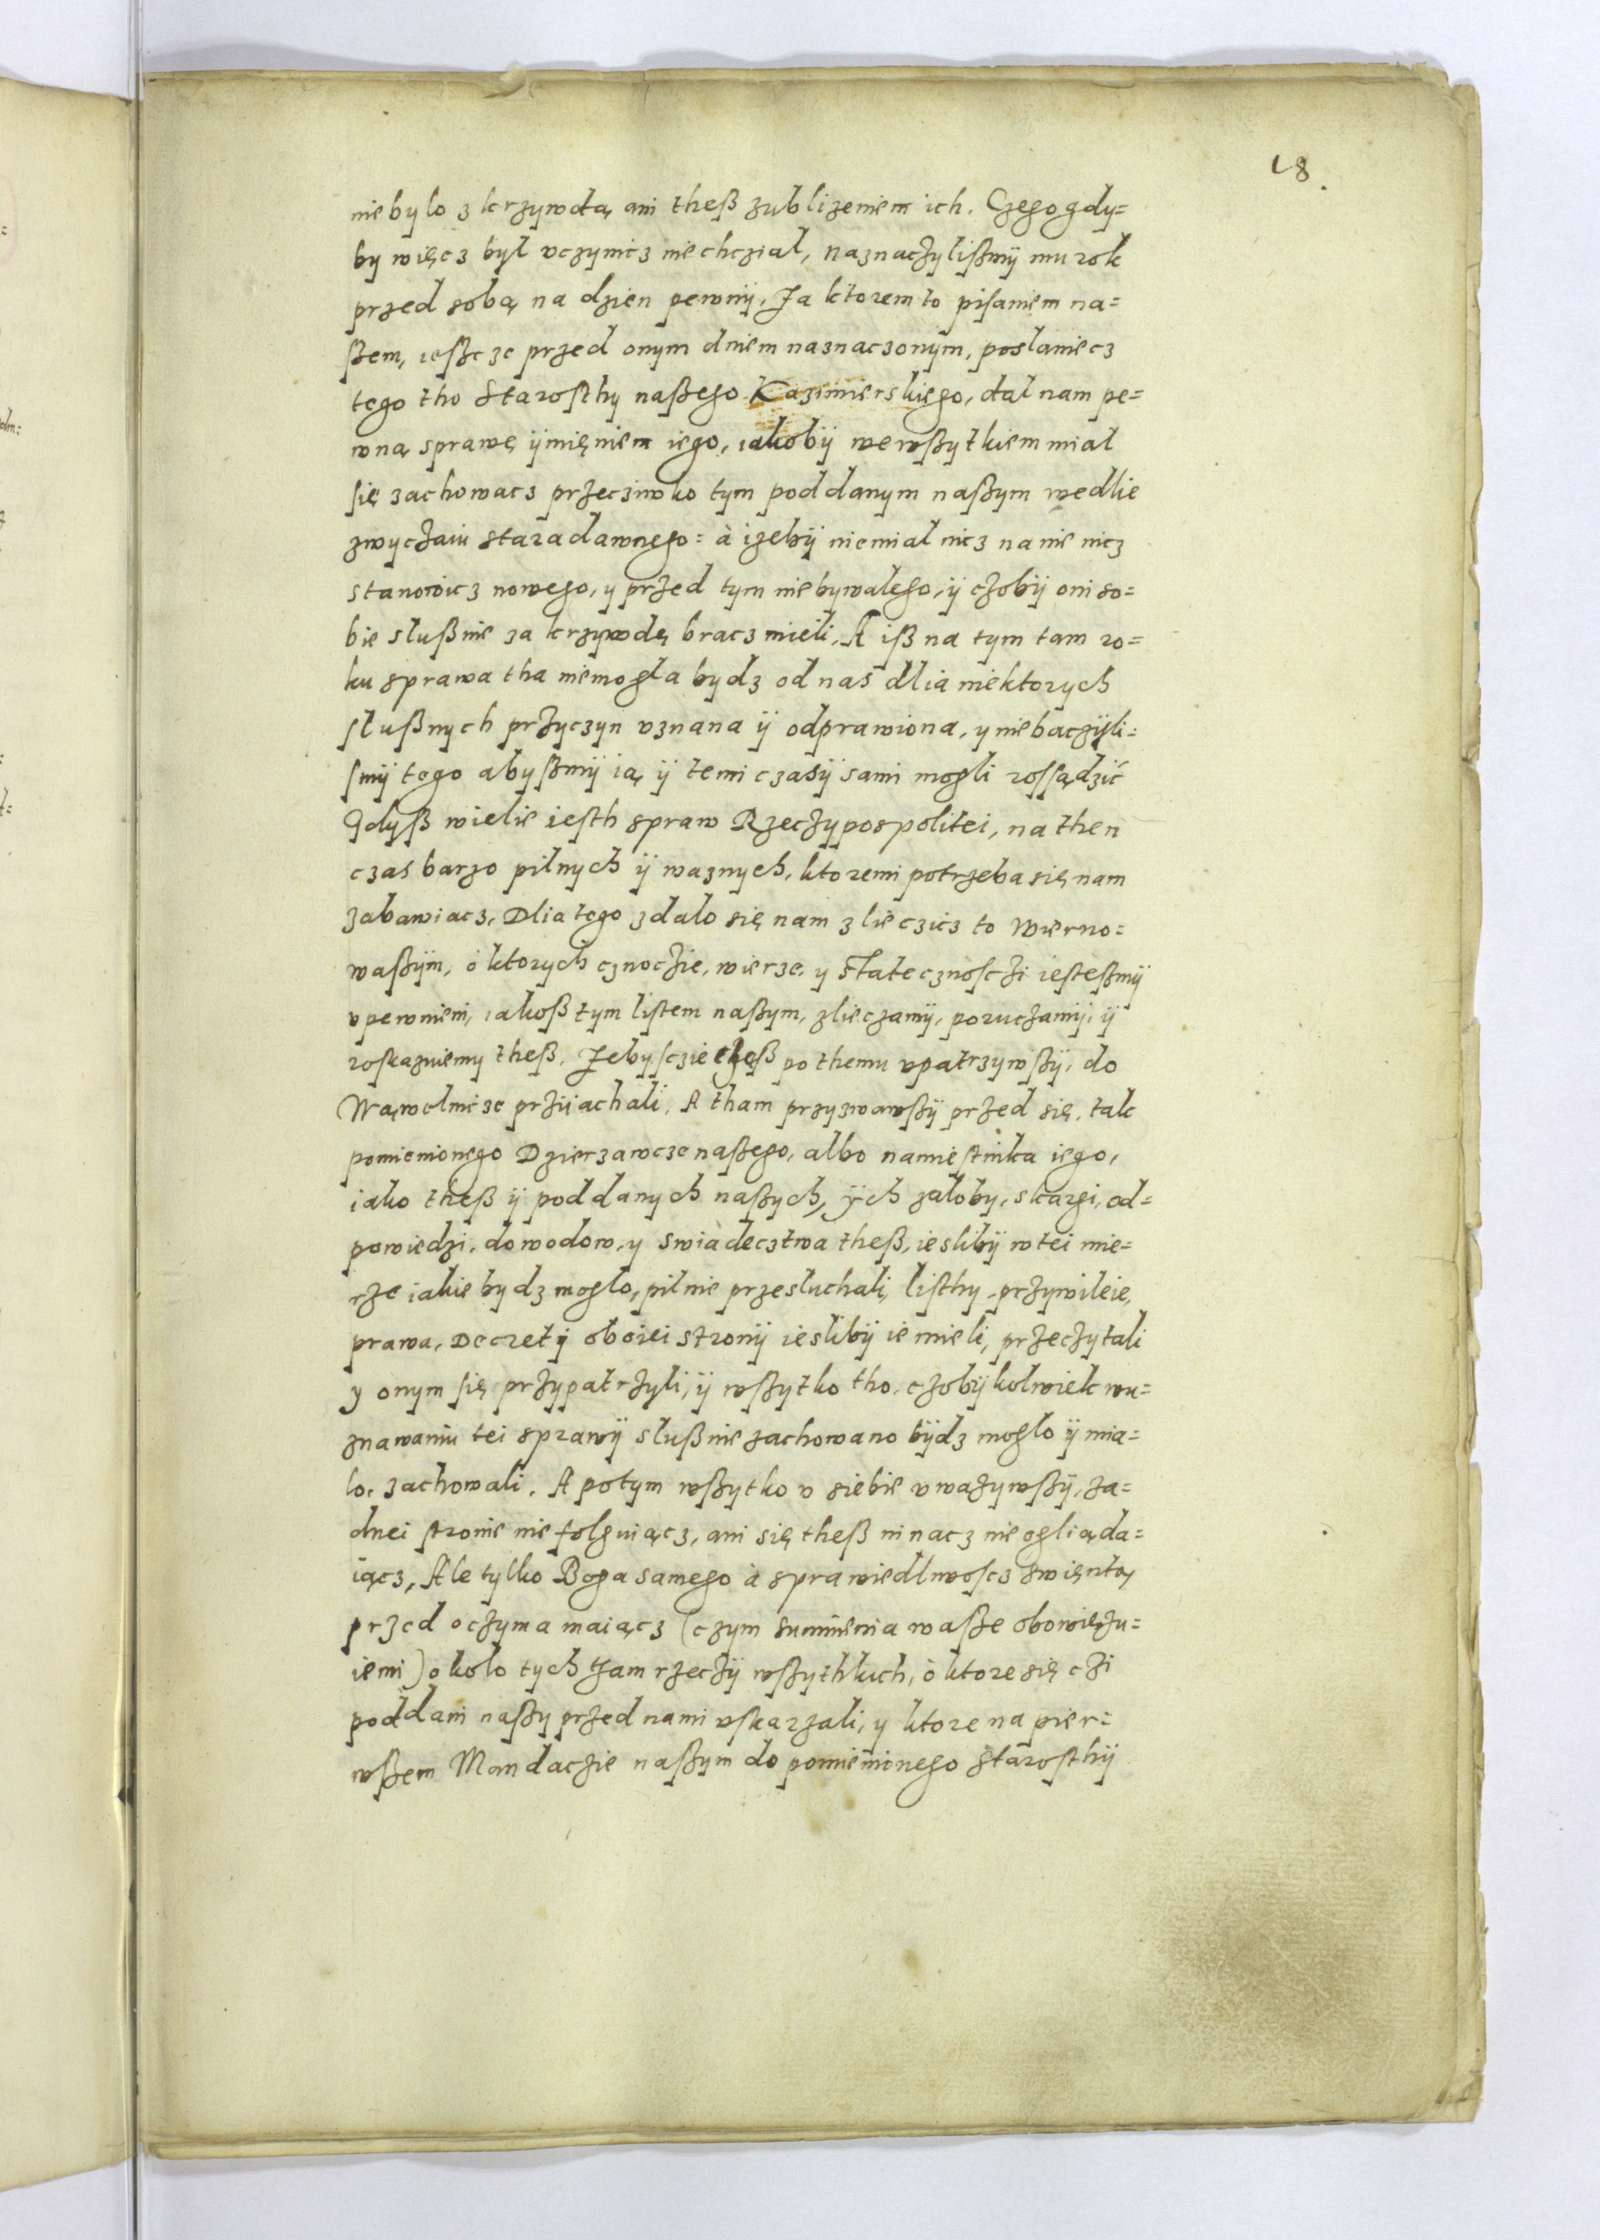 18.
nie bylo z krzywdą ani theß zubliżeniem ich. Czego gdy=
by więcz był uczynicz nie chcział, naznaczylißmÿ mu rok
przed sobą na dzien pewnÿ. Za ktorem to pisaniem na=
ßem, ießcze przed onym dniem naznaczonÿm, poslaniecz
tego tho Starosthy naßego Kazimierskiego, dal nam pe=
wną sprawę ÿmięniem iego, iakobÿ we wßytkiem miał
się zachowacz przeczi̇wko tym poddanym naßym wedlie
zwyczaiu staradawnego= à iżebÿ niemiał nicz na nie nicz
stanowicz nowego, y przed tym niebywałego, ÿ czobÿ oni so=
bie slußnie za krzywdę bracz mieli. A iß na tym tam ro=
ku sprawa tha niemogla bydz od nas dlia niektorych
slußnych przyczyn uznana ÿ odprawiona, y niebaczÿli=
smÿ tego abyßmÿ ią ÿ temi czasÿ sami mogli rossądzić
Gdyß wielie iesth spraw Rzeczypospolitei, na then
czas barzo pilnych ÿ waznych, ktoremi potrzeba się nam
zabawiacz. Dlia tego zdalo się nam zlieczicz to Wierno=
waßÿm, ò ktorych cznoczie, wierze, y statecznosczi iesteßmÿ
upewnieni, iakoß tym listem naßym, zlieczamÿ, poruczamÿ, ÿ
roskazuiemy theß. Zebysczie czaß po themu upatrzywßÿ, do
Wąwolnicze przÿiachali. A tham przyzwawßÿ przed się, tak
pomienionego Dzierzawcze naßego, albo namiestnika iego,
iako theß ÿ poddanych naßych, ÿch załoby, skargi, od=
powiedzi, dowodow, y swiadecztwa theß, ieslibÿ w tei mie=
rze iakie bydz moglo, pilnie przesluchali, listhy, przywileie,
prawa, Decretÿ oboiei stronÿ ieslibÿ ie mieli, przeczytali
y onym się przypatrzyli, ÿ wßytko tho, czobÿkolwiek wu=
znawaniu tei sprawÿ slußnie zachowano bÿdz moglo ÿ mia=
lo, zachowali. A potym wßytko u siebie uwazywßÿ, za=
dnei stronie nie folguiącz, ani się theß ni nacz nie ogliąda=
iącz, Ale tylko Boga samego à sprawiedliwoscz swiętą
przed oczyma maiącz (czym sumnienia waße obowiezu=
iemi) okolo tych tam rzeczÿ wßythkich, ò ktore się czi
poddani naßy przed nami uskarzali, y ktore na pier=
wßem Mandaczie naßym do pomienionego Starosthÿ